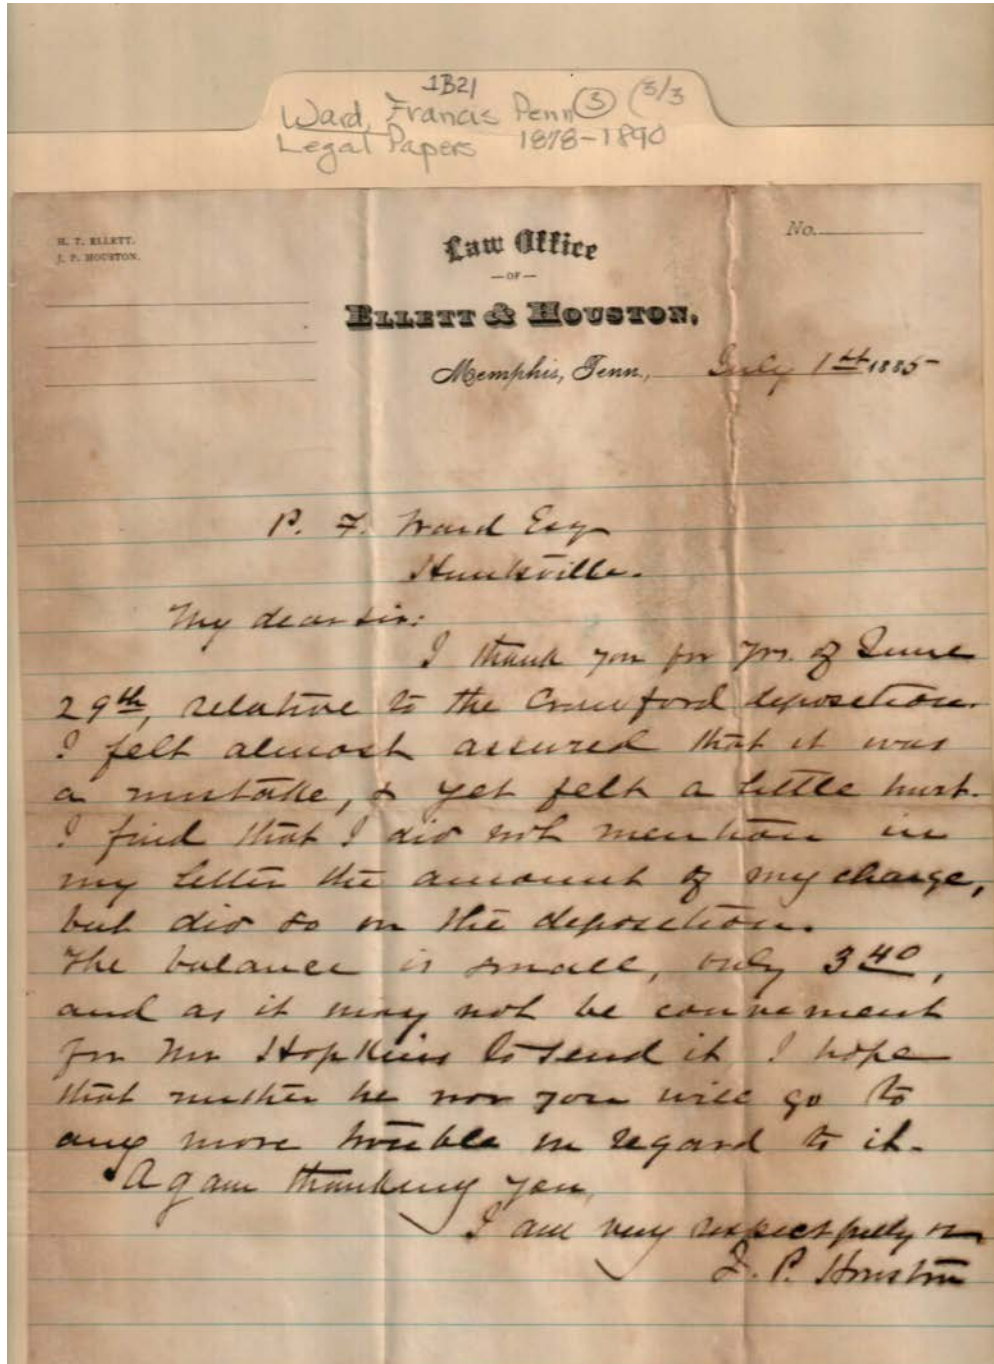 1B21
Ward, Francis Penn ③ (3/3
Legal Papers 1878-1890
H. T. ELLETT.
J. P. HOUSTON.
No.
Law Office
—OF—
ELLETT & HOUSTON,
Memphis, Tenn., July 1st 1885
P. F. Ward Esq
Huntsville.
My dear sir:
I thank you for yrs. of June
29th, relative to the Crawford deposition.
I felt almost assured that it was
a mistake, & yet felt a little hurt.
I find that I did not mention in
my letter the amount of my charge,
but did so on the deposition.
The balance is small, only 3 40,
and as it may not be convenient
for Mr Hopkins to send it I hope
that neither he nor you will go to
any more trouble in regard to it.
Again thanking you,
I am very respectfully
J. P. Houston